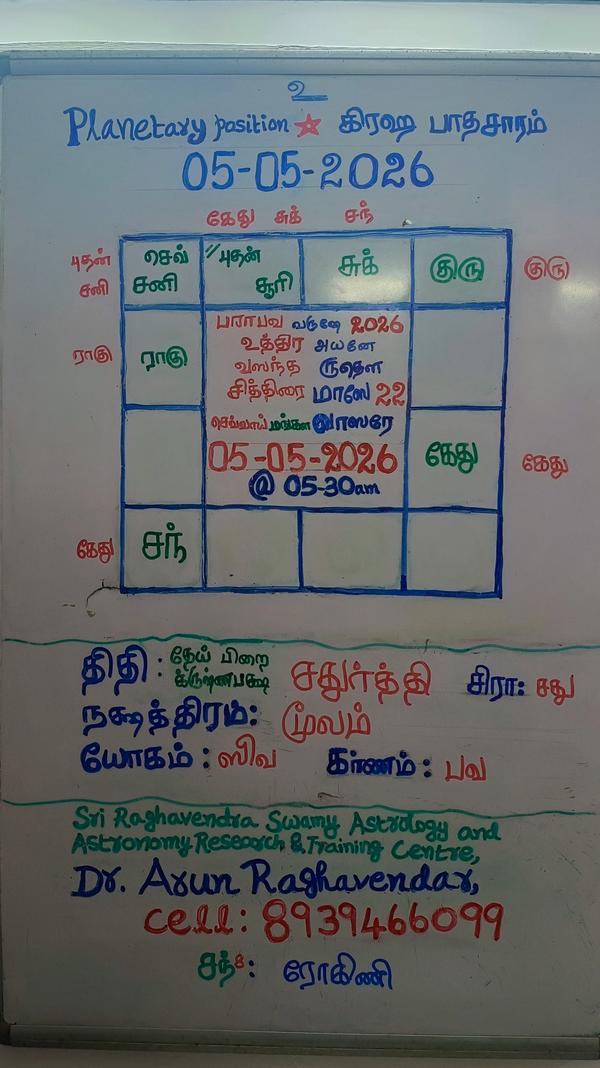 உ
Planetary position கிரஹ பாதசாரம்
05-05-2026
கேது சுக் சந்
புதன் செவ் புதன் சுக் குரு குரு
சனி சனி சூரி
பராபவ வருஷே 2026
உத்திர அயனே
ராகு ராகு வஸந்த ருதௌ
சித்திரை மாஸே 22
செவ்வாய் மங்கள வாஸரே
கேது கேது
05-05-2026
@ 05-30am
கேது சந்
திதி : தேய் பிறை சதுர்த்தி சிரா: சது
க்ருஷ்ணபக்ஷ
நக்ஷத்திரம்: மூலம்
யோகம் : ஸிவ கர்ணம் : பவ
Sri Raghavendra Swamy Astrology and
Astronomy Research & Training Centre,
Dr. Arun Raghavendar,
cell: 8939466099
சந்8: ரோகிணி